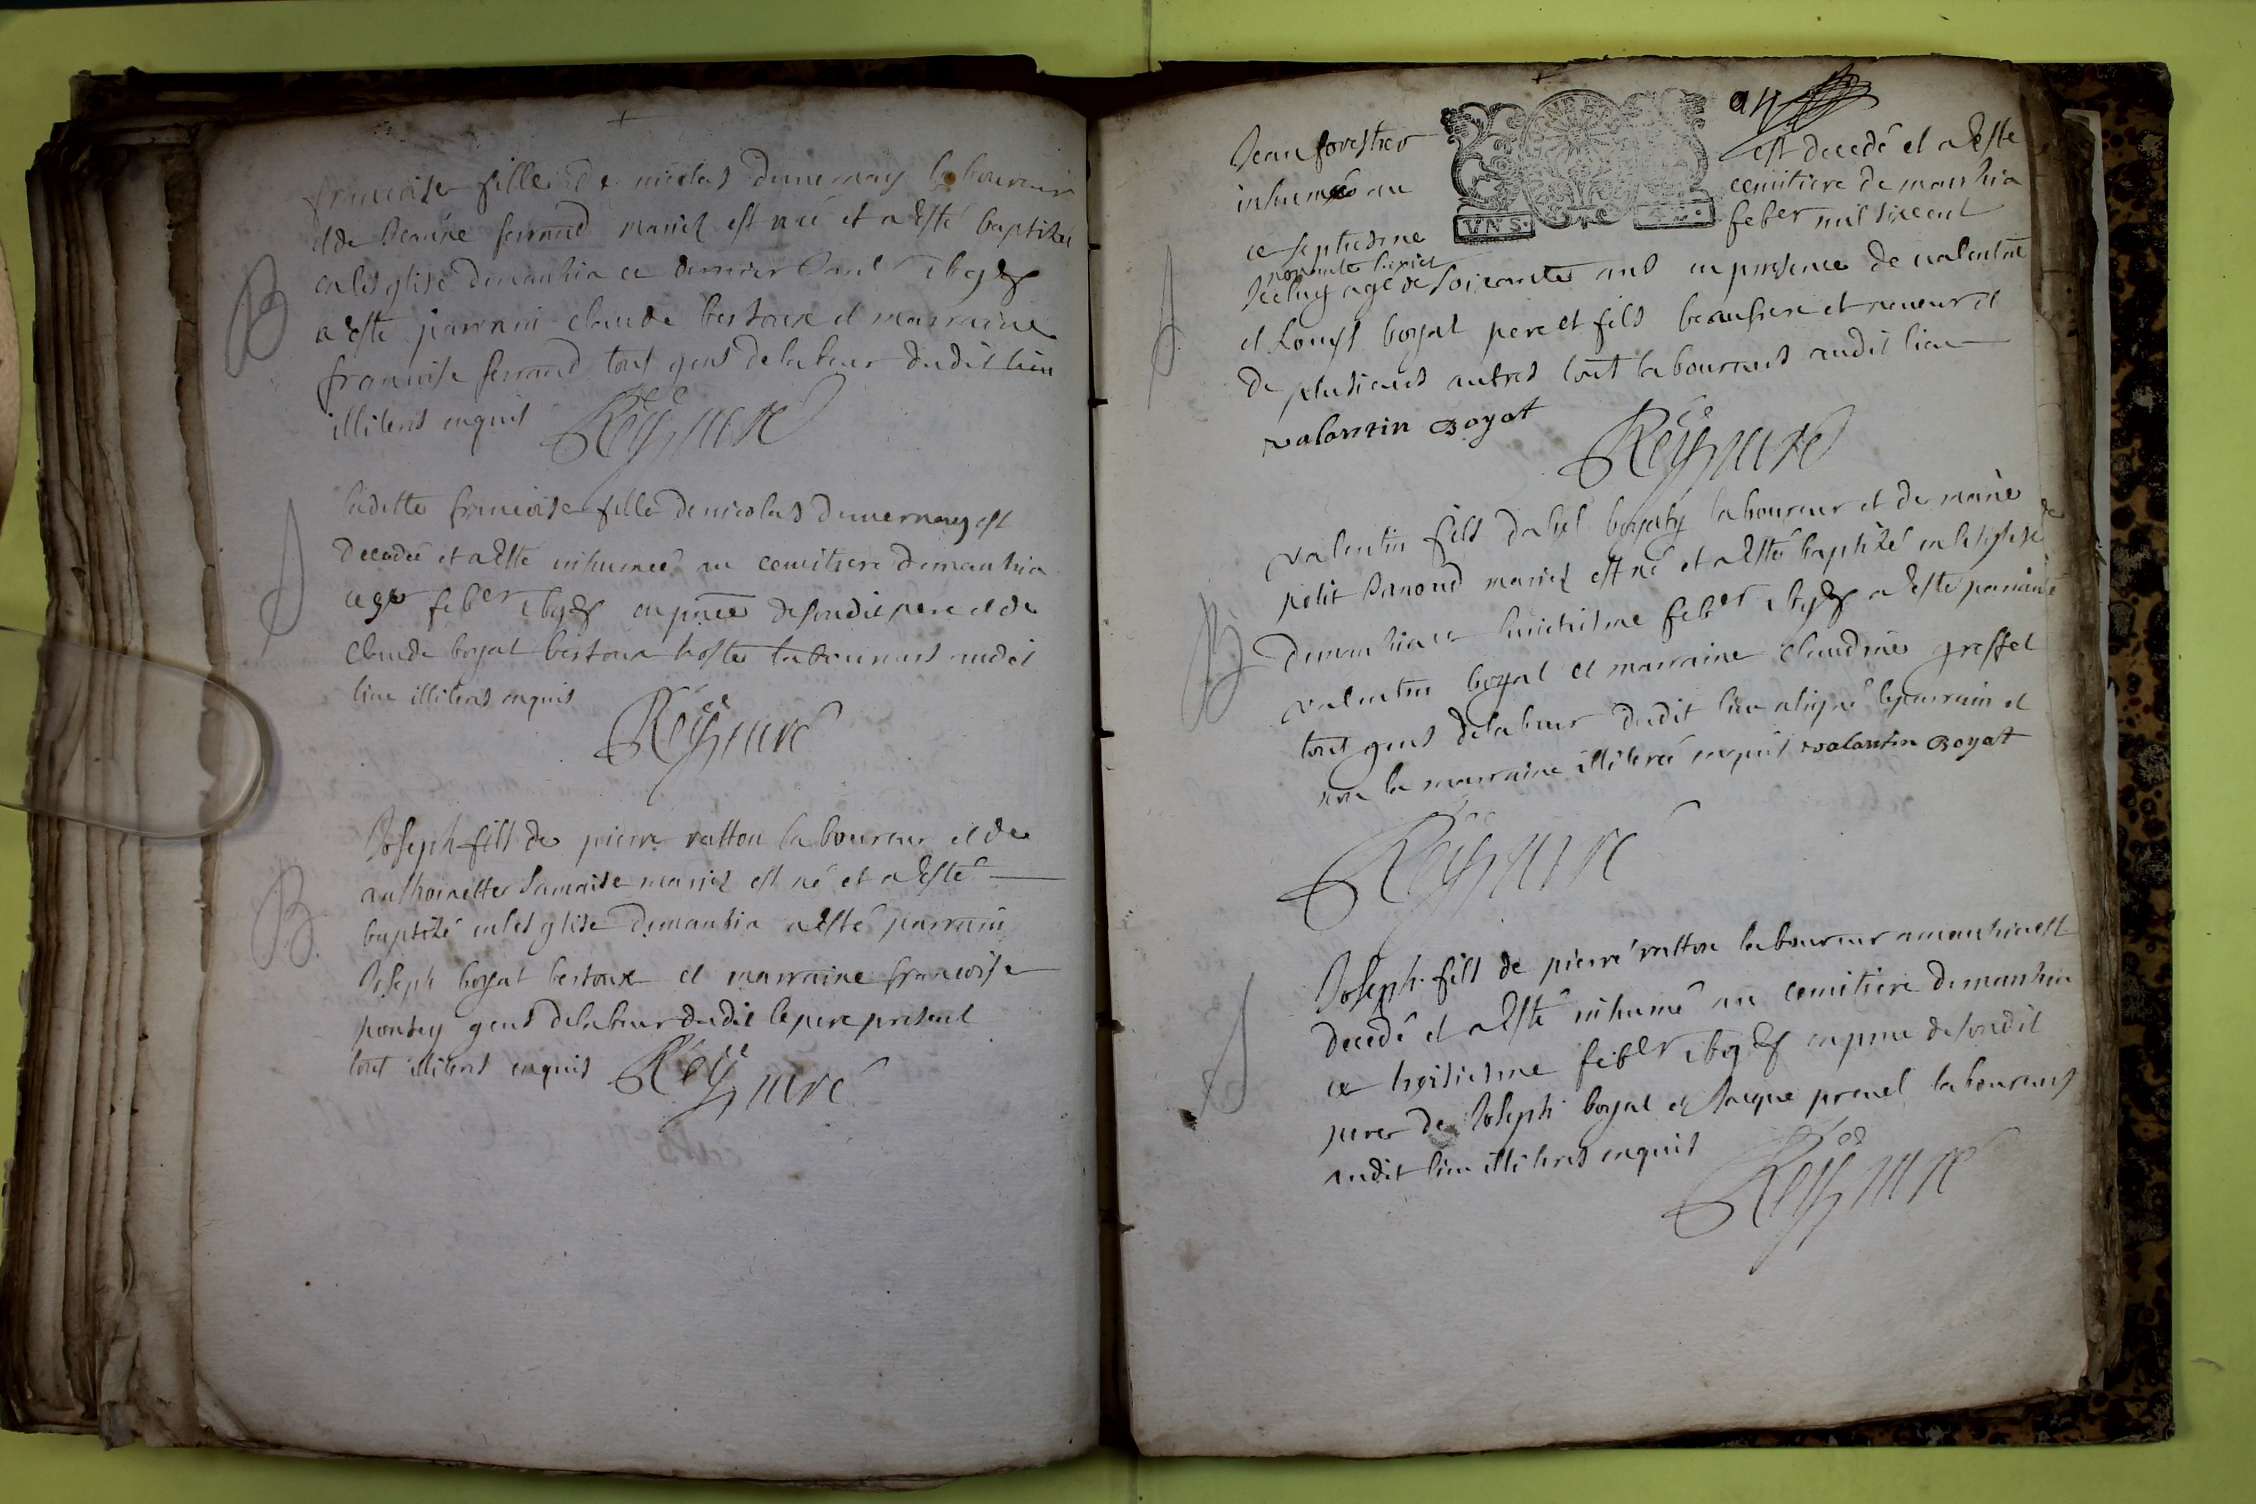 francoise fille de nicolas duuernay laboureur
et de Jeanne ferrand mariez est née et a Esté baptizée
en lesglise demanthia ce dernier
a esté parrain claude bertoux et marraine
francoise ferrand tous gens delabeur dudit lieu
illiterés enquis Rey curé
B
laditte francoise fille denicolas duuernay est
decedeé et a Esté inhumeé au cemitiere demanthia
ce feber en pnce desondit pere et de
claude boyat bertoux hoste laboureurs audit
lieu illiterés enquis
Rey curé
Joseph fils de pierre ratton laboureur et de
anthoinette mariez est né et a Esté
B
baptizé en lesglise demanthia a Esté parrain
Joseph boyat bertoux et marraine francoise
gens delabeur dudit le pere present
tous illiterés enquis Rey curé
Jean forestier est decedé et a Esté
inhumé au cemitiere de manthia
VNS.
ce septiesme feber mil sixcent
nonante
age de soixante ans en presence de ualentin
et Louys boyat pere et fils beaufrere et neueux et
de plusieurs autres tous laboureurs audit lieu
valantin Boyat
Rey curé
valentin fils laboureur et de marie
petit mariez est né et a Esté baptizé en lesglise
B
demanthia ce huictiesme feber a Esté parrain
valentin boyat et marraine claudine
tous gens delabeur dudit lieu a signé le parrain et
non la marraine illitereé enquis valantin Boyat
Rey curé
Joseph fils de pierre ratton laboureur a manthia est
decedé et a Esté inhumé au cemitiere demanthia
ce feber en pnce desondit
pere de Joseph boyat et Jacque laboureurs
audit lieu illiterés enquis
Rey curé